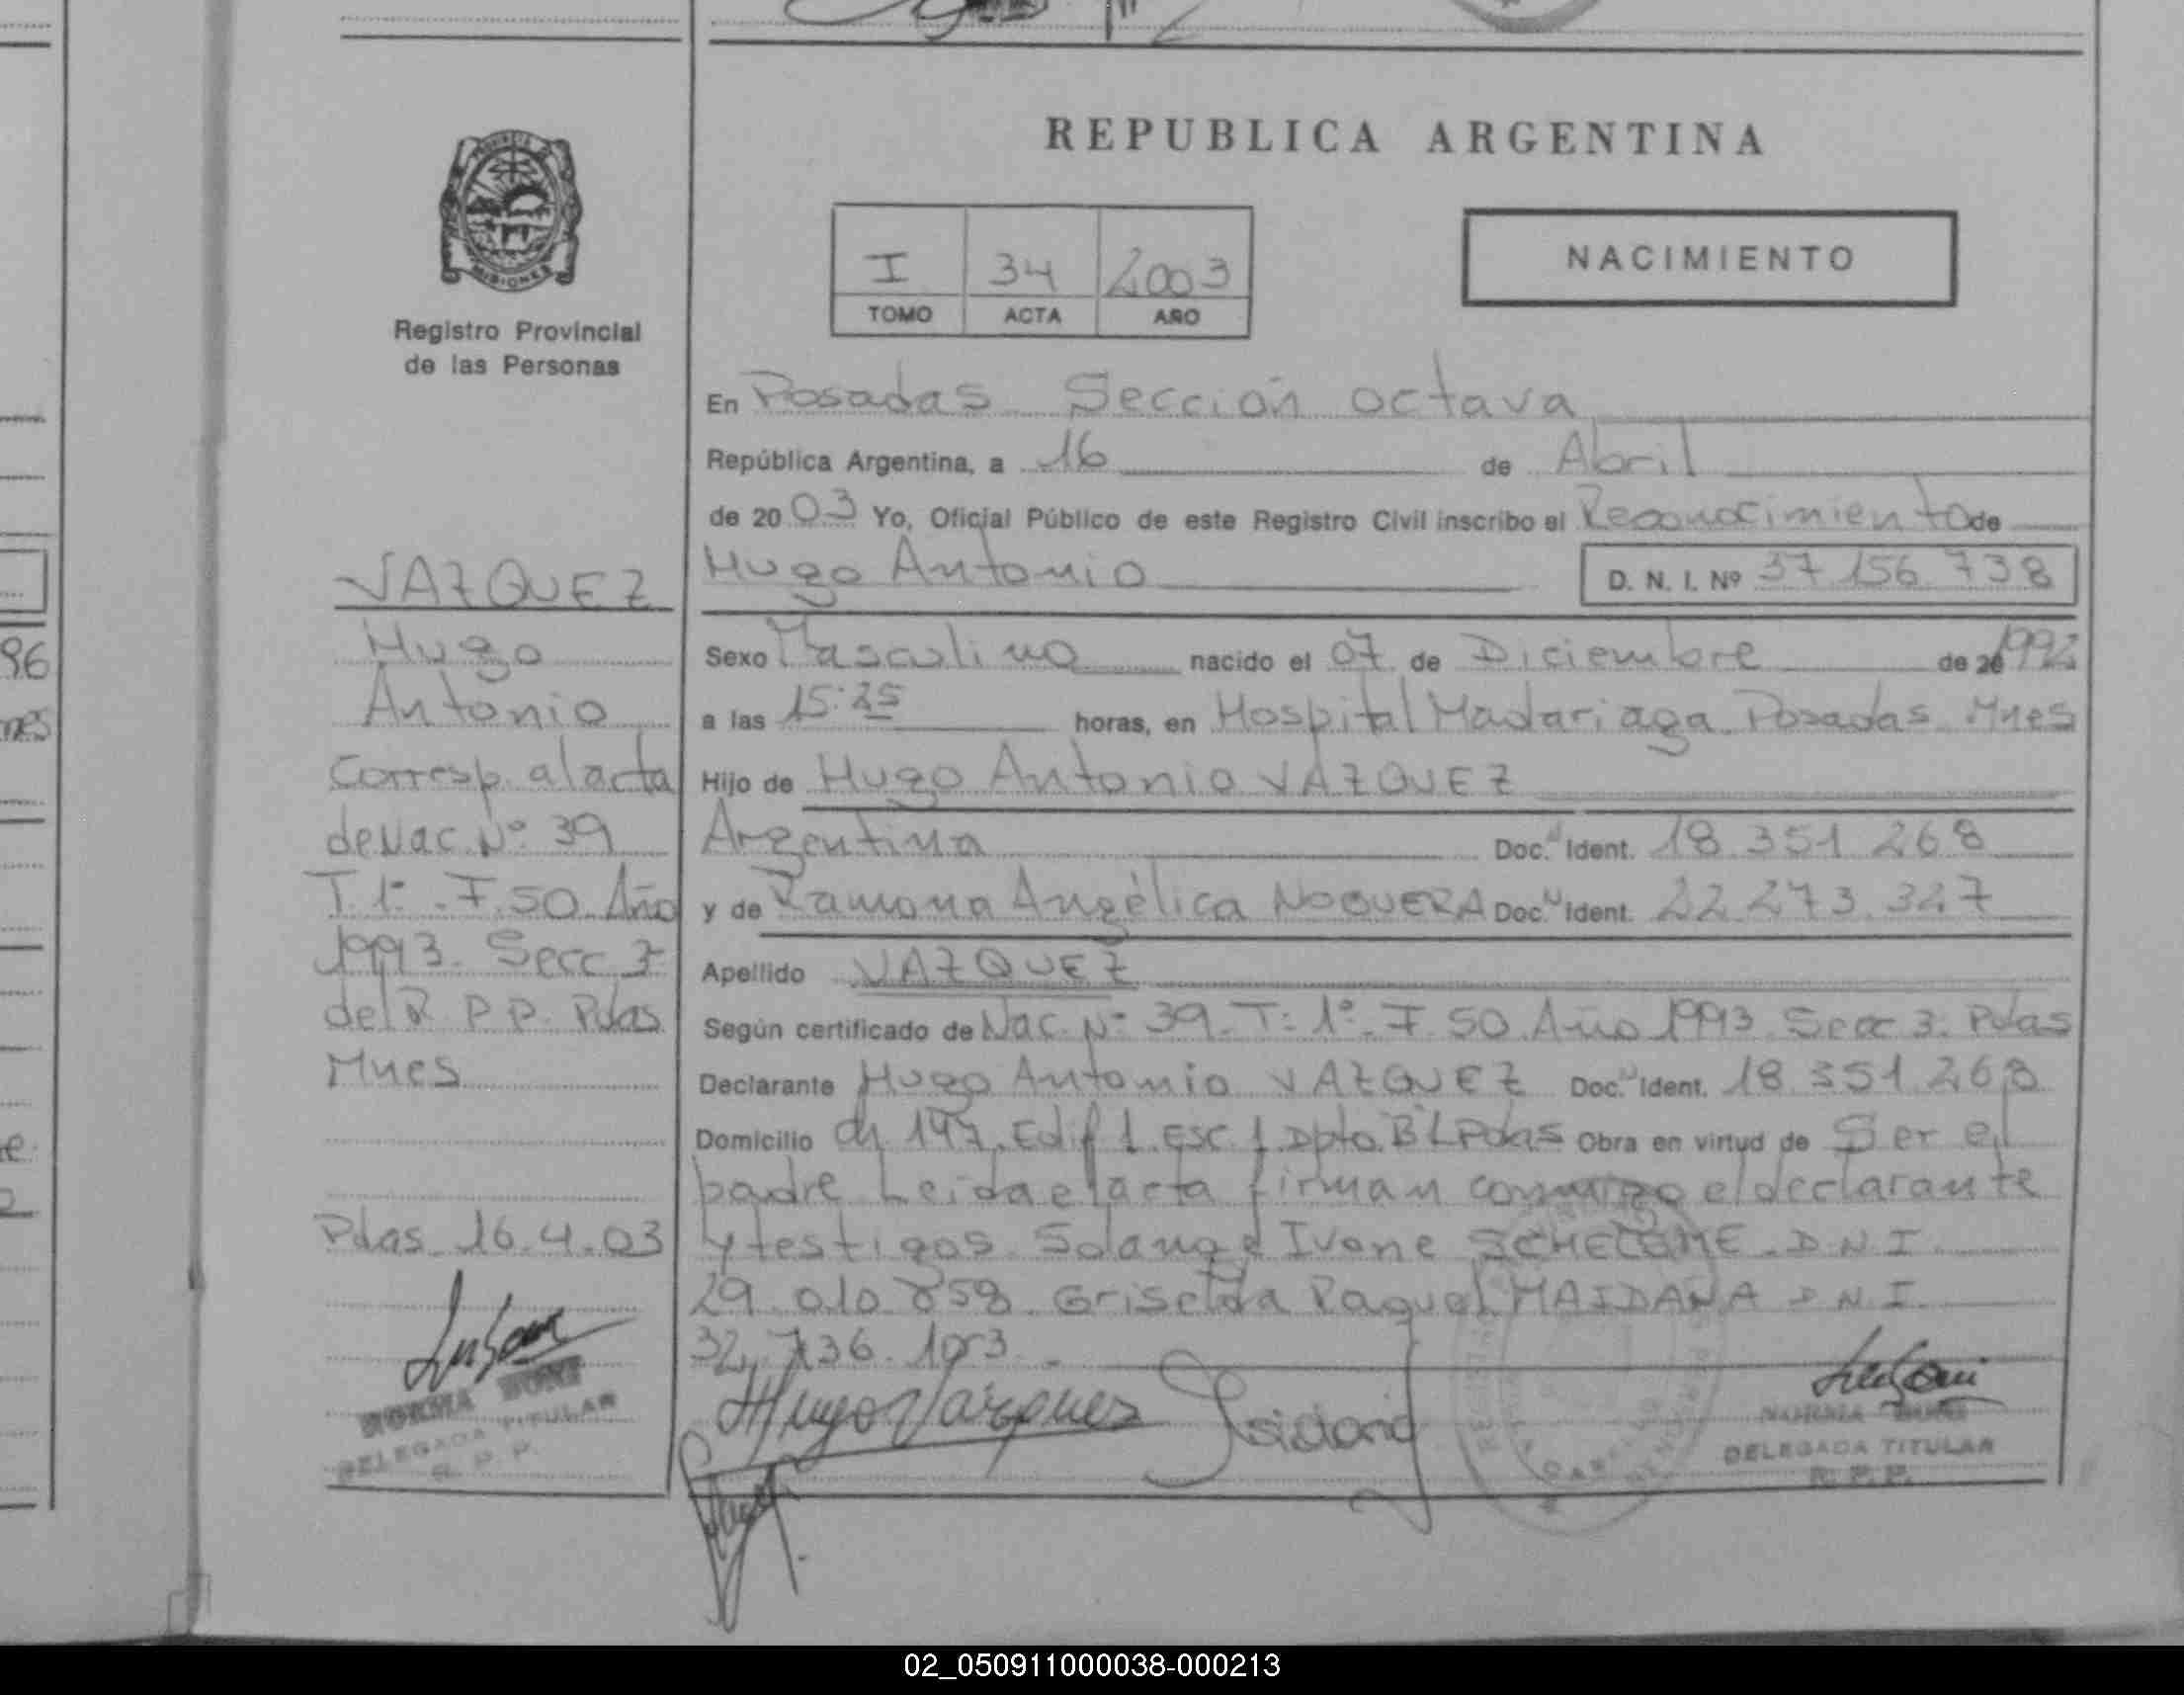 REPUBLICA ARGENTINA
MISIONES
Registro Provincial
de las Personas
I 34 2003
TOMO ACTA AÑO
NACIMIENTO
En Posadas Sección octava
República Argentina, a 16 de Abril
de 20 03 Yo, Oficial Público de este Registro Civil inscribo el Reconocimiento de
Hugo Antonio D. N. I. Nº 37 156 738
Sexo Masculino nacido el 07 de Diciembre de 20 1992
a las 15:25 horas, en Hospital Madariaga Posadas Mnes
Hijo de Hugo Antonio VAZQUEZ
Argentina Doc. Ident. 18.351.268
y de Ramona Angélica NOGUERA Doc. Ident. 22.273.327
Apellido VAZQUEZ
Según certificado de Nac. Nº 39. T: 1º. F. 50 Año 1993 Secc 3. Pdas
Declarante Hugo Antonio VAZQUEZ Doc. Ident. 18.351.268
Domicilio Ch 147. Edif 1. Esc. 1. Dpto. B Pdas Obra en virtud de Ser el
padre Leida el acta firman conmigo el declarante
y testigos Solange Ivone D.N.I
29.010.858. Griselda Raquel MAIDANA D.N.I.
32.736.103.
Hugo Vazquez
NORMA
DELEGADA TITULAR
R. P. P.
VAZQUEZ
Hugo
Antonio
Corresp. al acta
de Nac. Nº 39
T. 1º. F. 50 Año
1993. Secc 3
del R. P. P. Pdas
Mnes
Pdas 16.4.03
NORMA
DELEGADA TITULAR
R. P. P.
96
nes
02_050911000038-000213